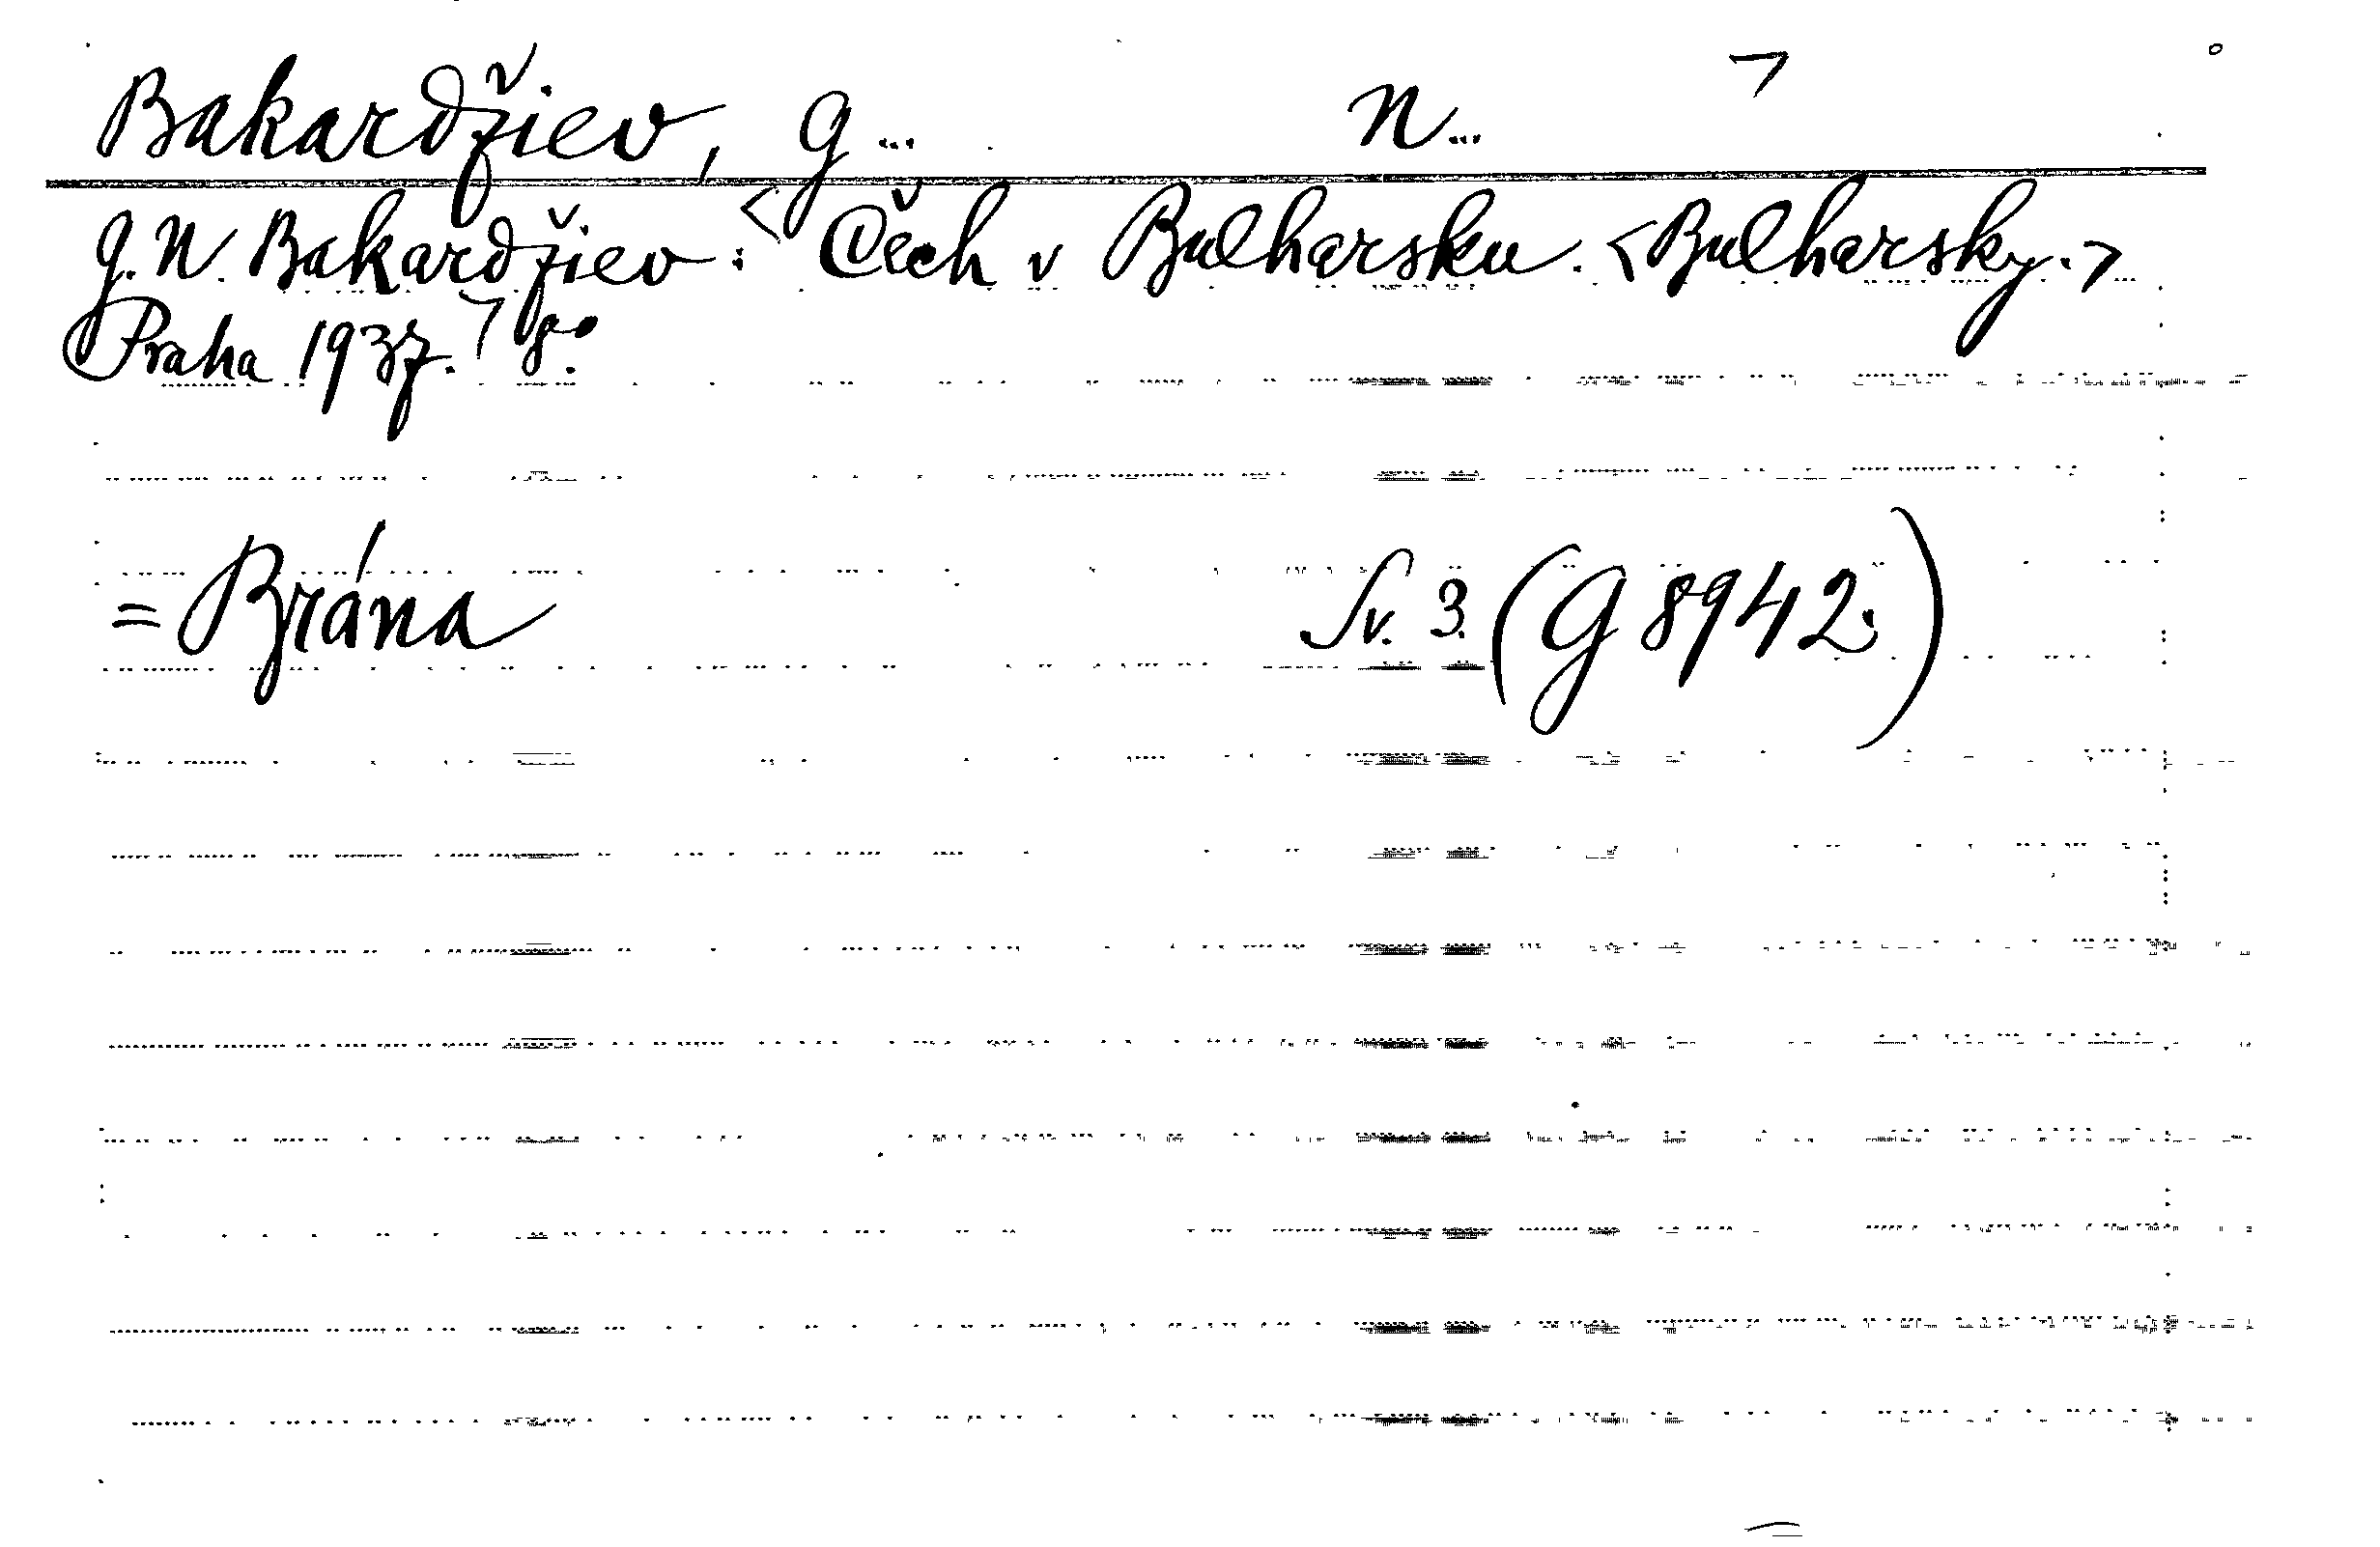 Bakardžiev, G... N...
G. N. Bakardžiev: <Čech v Bulharsku. <Bulharsky.>
Praha 1937.> 8°.
= Brána Sv. 3. (G 8942.)